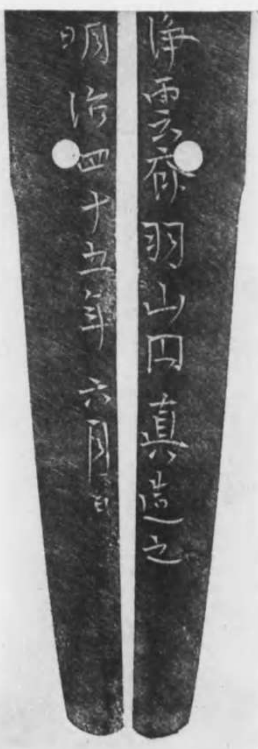 浄雲斎羽山円真造之
明治四十五年六月日